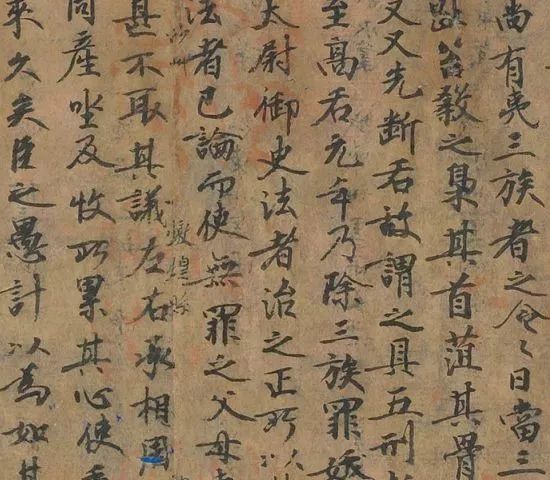 尚有夷三族者之令々日當三
趾笞敎之梟其首菹其骨
又又先斷舌故謂之具五刑
至髙后元年乃除三族罪
太尉御史法者治之正所以
法者已論而使無罪之父母
甚不取其議左右承相周
同産坐及收所累其心使
來久矣臣之愚計以為如其